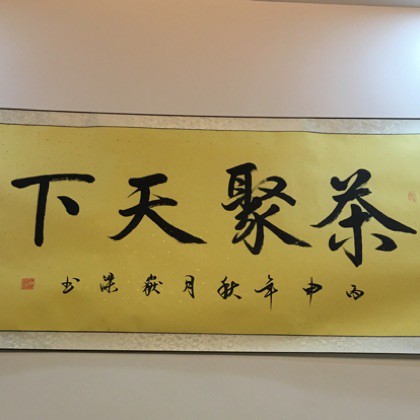 茶聚天下
丙申年秋月嶽梁书